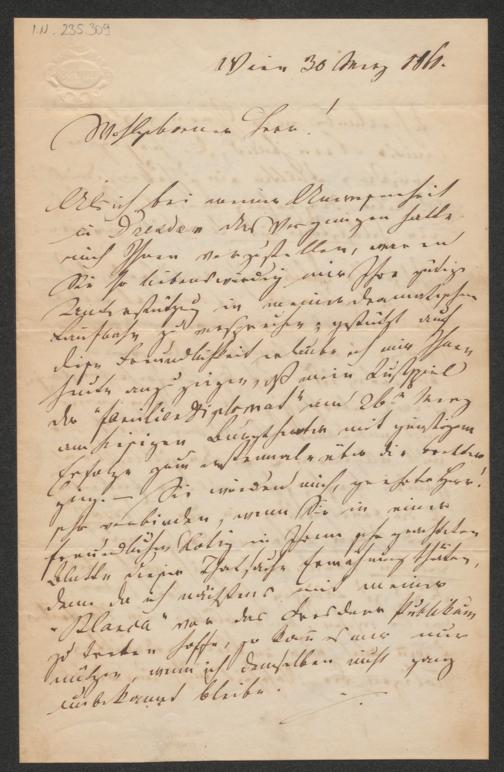 I.N. 235.309
Wien 30 März 186
Wohlgeborner Herr!
Als ich bei meiner Anwesenheit
in Dresden das Vergnügen hatte
mich Ihnen vorzustellen, waren
Sie so liebenswürdig mir Ihre gütige
Unterstützung in meiner dramatischen
Laufbahn zu versprechen; gestützt auf
diese Freundlichkeit erlaube ich mir Ihnen
heute anzuzeigen, daß mein Lustspiel
der "Familien Diplomat" am 26ten März
am hiesigen Burgtheater mit günstigem
Erfolge zum erstenmale über die Bretter
ging. — Sie würden mich, geehrter Herr!
sehr verbinden, wenn Sie in einer
freundlichen Notiz in Ihrem sehr geachteten
Blatte dieser Thatsache Erwähnung thäten,
denn da ich nächstens mit meiner
"Blanca" vor das Dresdner Publikum
zu treten hoffe, so kann es mir nur
nützen, wenn ich demselben nicht ganz
unbekannt bleibe.